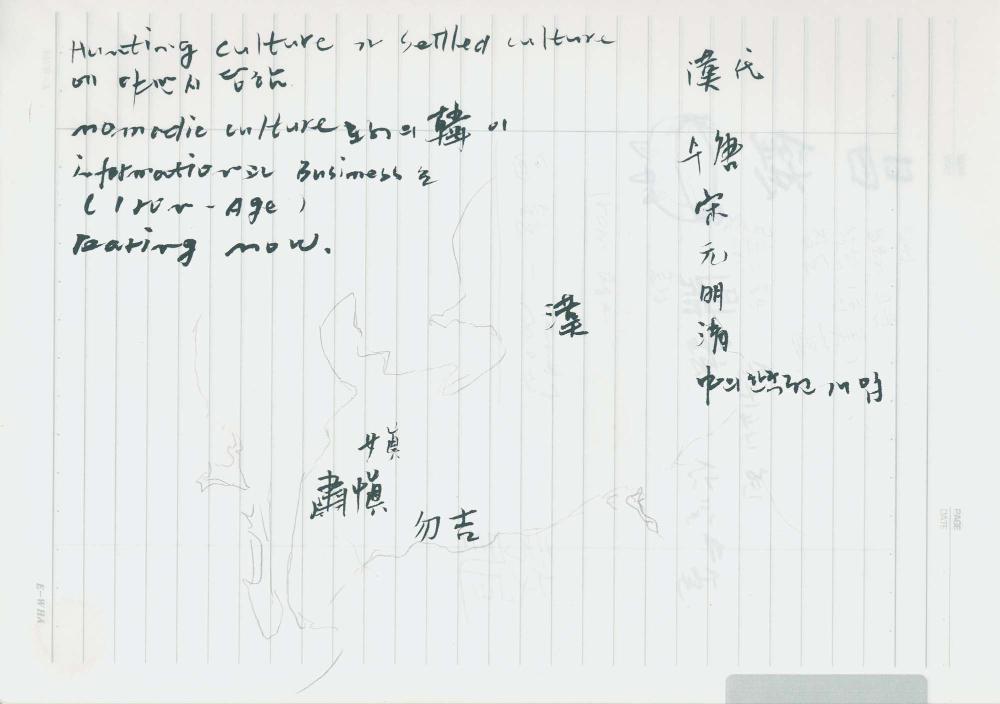 Hunting culture 가 settled culture
에 야만시 당함
nomadic culture 로서의 韓 이
information과 Business를
(Iron-Age)
now.
漢氏
수唐
宋
元
明
清
中의 한국전 개입
漢
女真
肅愼
勿吉
PAGE
DATE
E-WHA